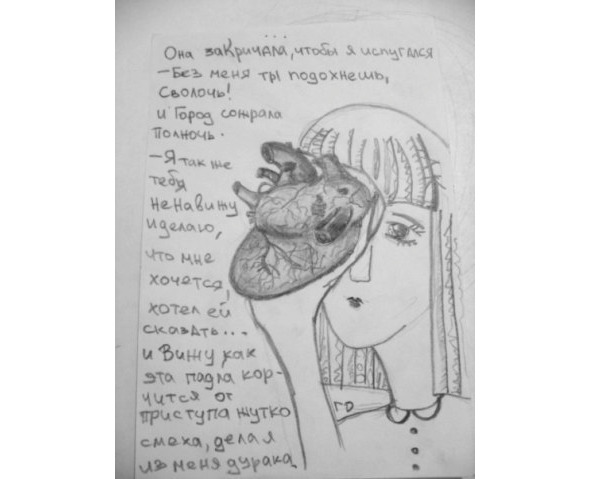 ...
Она заКричала, чтобы я испугался
– Без меня ты подохнешь,
Сволочь!
и Город сожрала
Полночь.
– Я так же
тебя
ненавижу
и делаю,
что мне
хочется,
хотел ей
сказать...
и Вижу как
эта падла кор-
чится от
приступа жутко
смеха, делая
из меня дурака
ГD